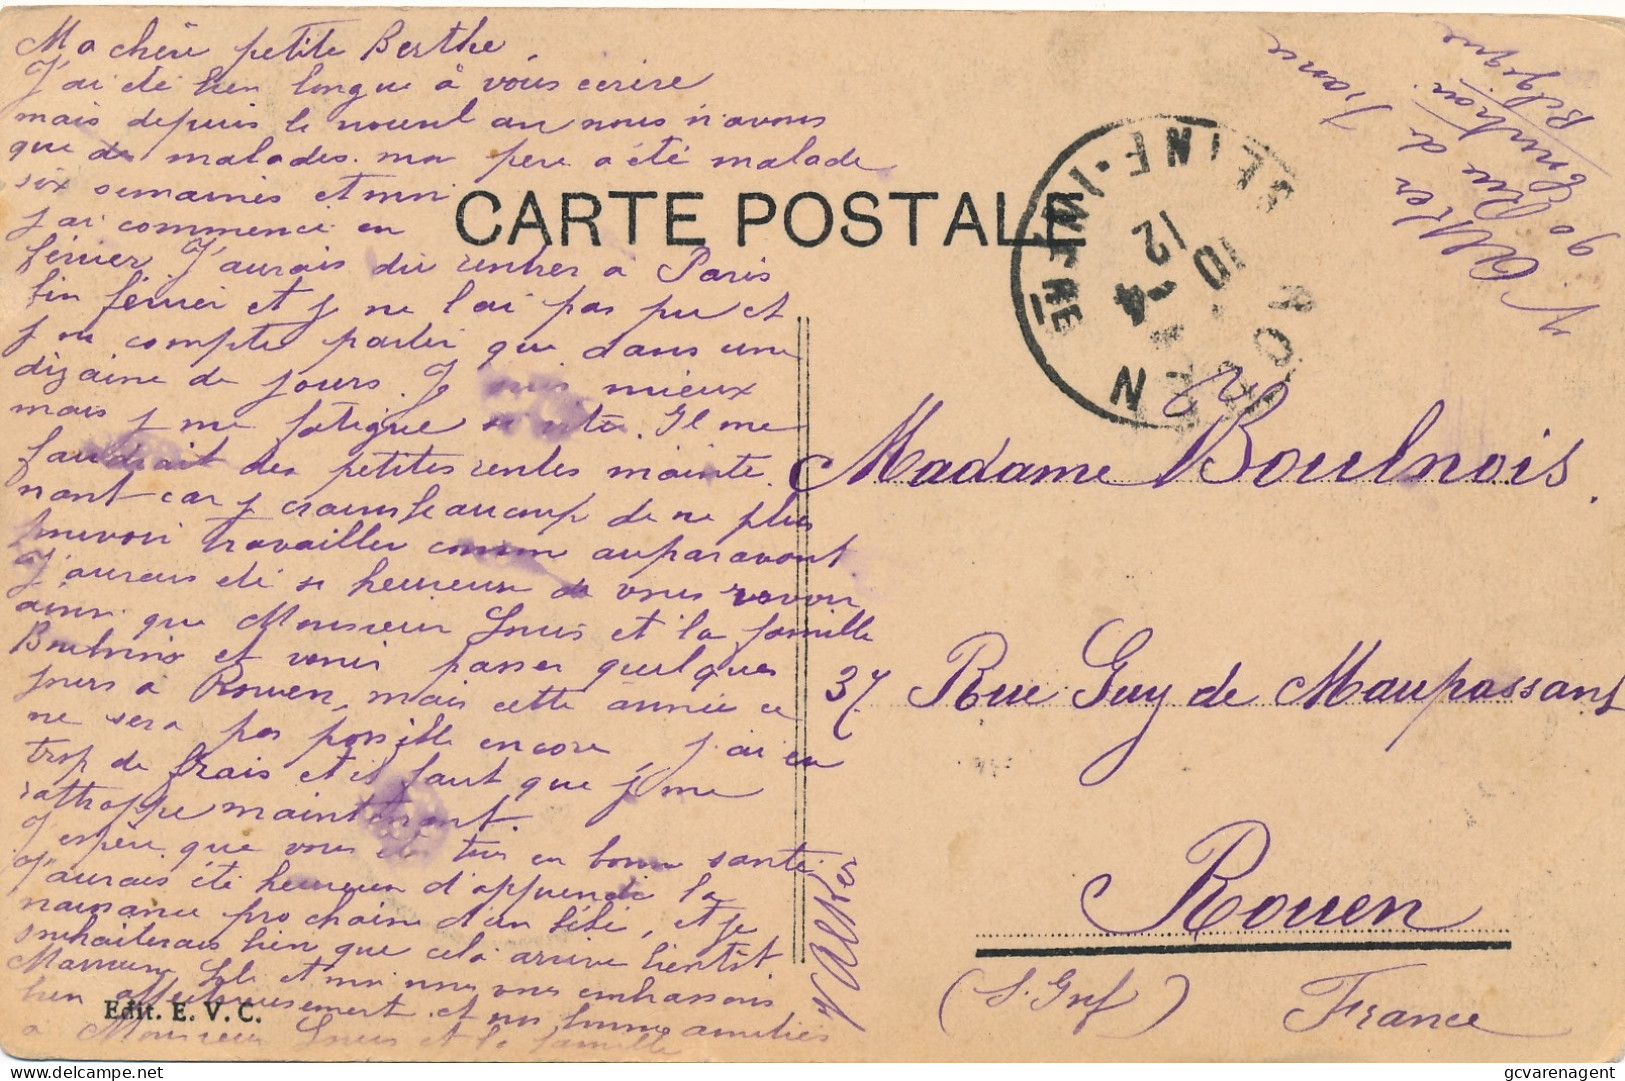 Ma chère petite Berthe,
J'ai été bien longue à vous écrire
mais depuis le nouvel an nous n'avons
que des malades. mon père a été malade
six semaines et moi
j'ai commencé en
février J'aurais dû rentrer à Paris
fin février et j ne l'ai pas pu et
j ne compte partir que dans une
dizaine de jours. Je suis mieux
mais j me fatigue si vite. Il me
faudrait des petites rentes mainte
nant car j crains beaucoup de ne plus
pouvoir travailler comme auparavant
J'aurais été si heureuse de vous revoir
ainsi que Monsieur Louis et la famille
Boulnois et venir passer quelques
jours à Rouen, mais cette année ce
ne sera pas possible encore, j'ai eu
trop de frais et il faut que j me
rattrappe maintenant.
J'espère que vous êtes tous en bonne santé,
J'aurais été heureuse d'apprendre la
naissance prochaine d'un bébé, et je
souhaiterais bien que cela arrive bientôt
Maman et moi nous vous embrassons
bien affectueusement et nos bonnes amitiés
à Monsieur Louis et la famille
CARTE POSTALE
ROUEN
SEINE-INFRE
12
10-4
Madame Boulnois.
37 Rue Guy de Maupassant
Rouen
(S. Inf)
France
90 Rue de France
Belgique
Edit. E. V. C.
gcvarenagent